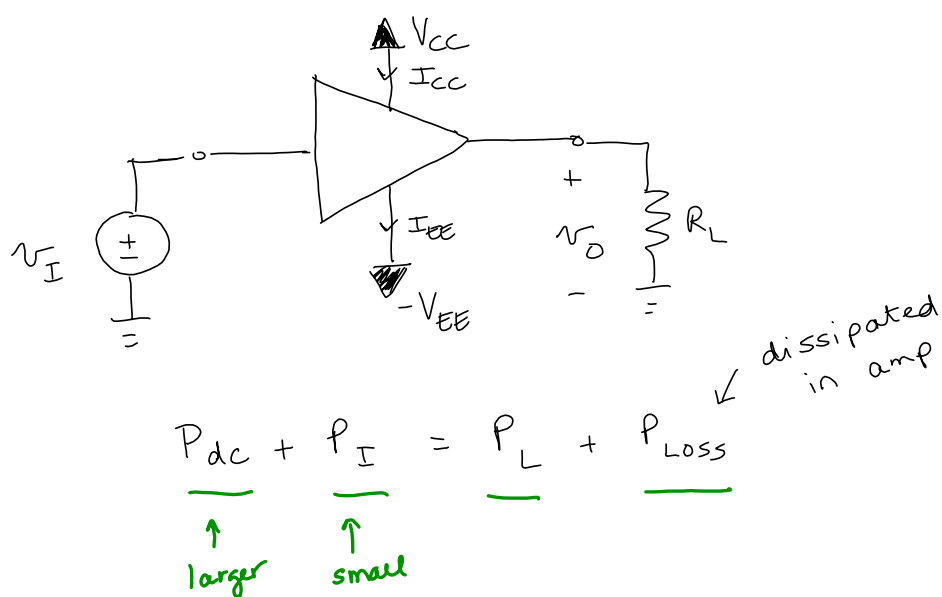 V_CC
I_CC
I_EE
-V_EE
v_I
±
+
v_O
−
R_L
dissipated
in amp
P_dc + P_I = P_L + P_LOSS
larger
small